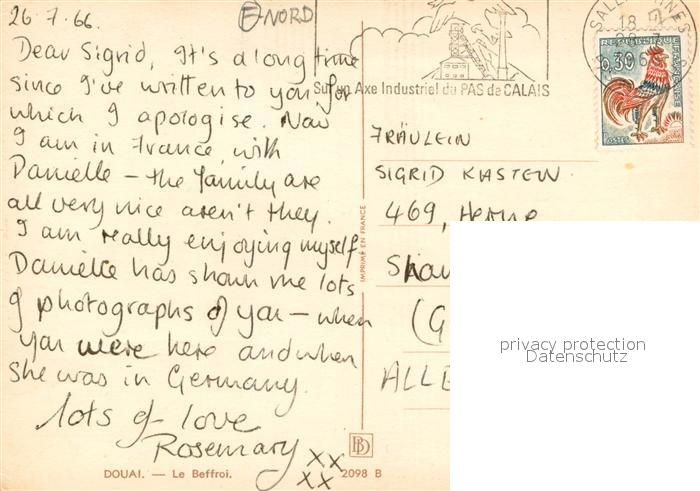 26.7.66.
F-NORD
Dear Sigrid, It's a long time
since I've written to you, for
which I apologise. Now
I am in France with
Danielle – the family are
all very nice aren't they.
I am really enjoying myself
Danielle has shown me lots
of photographs of you – when
you were here and when
she was in Germany.
lots of love
Rosemary
xx
xx
DOUAI. — Le Beffroi.
2098 B
IMPRIMÉ EN FRANCE
Sur un Axe Industriel du PAS de CALAIS
18
0,30
REPUBLIQUE FRANCAISE
POSTES
FRÄULEIN
SIGRID
469, Herne
(G
ALLE
privacy protection
Datenschutz